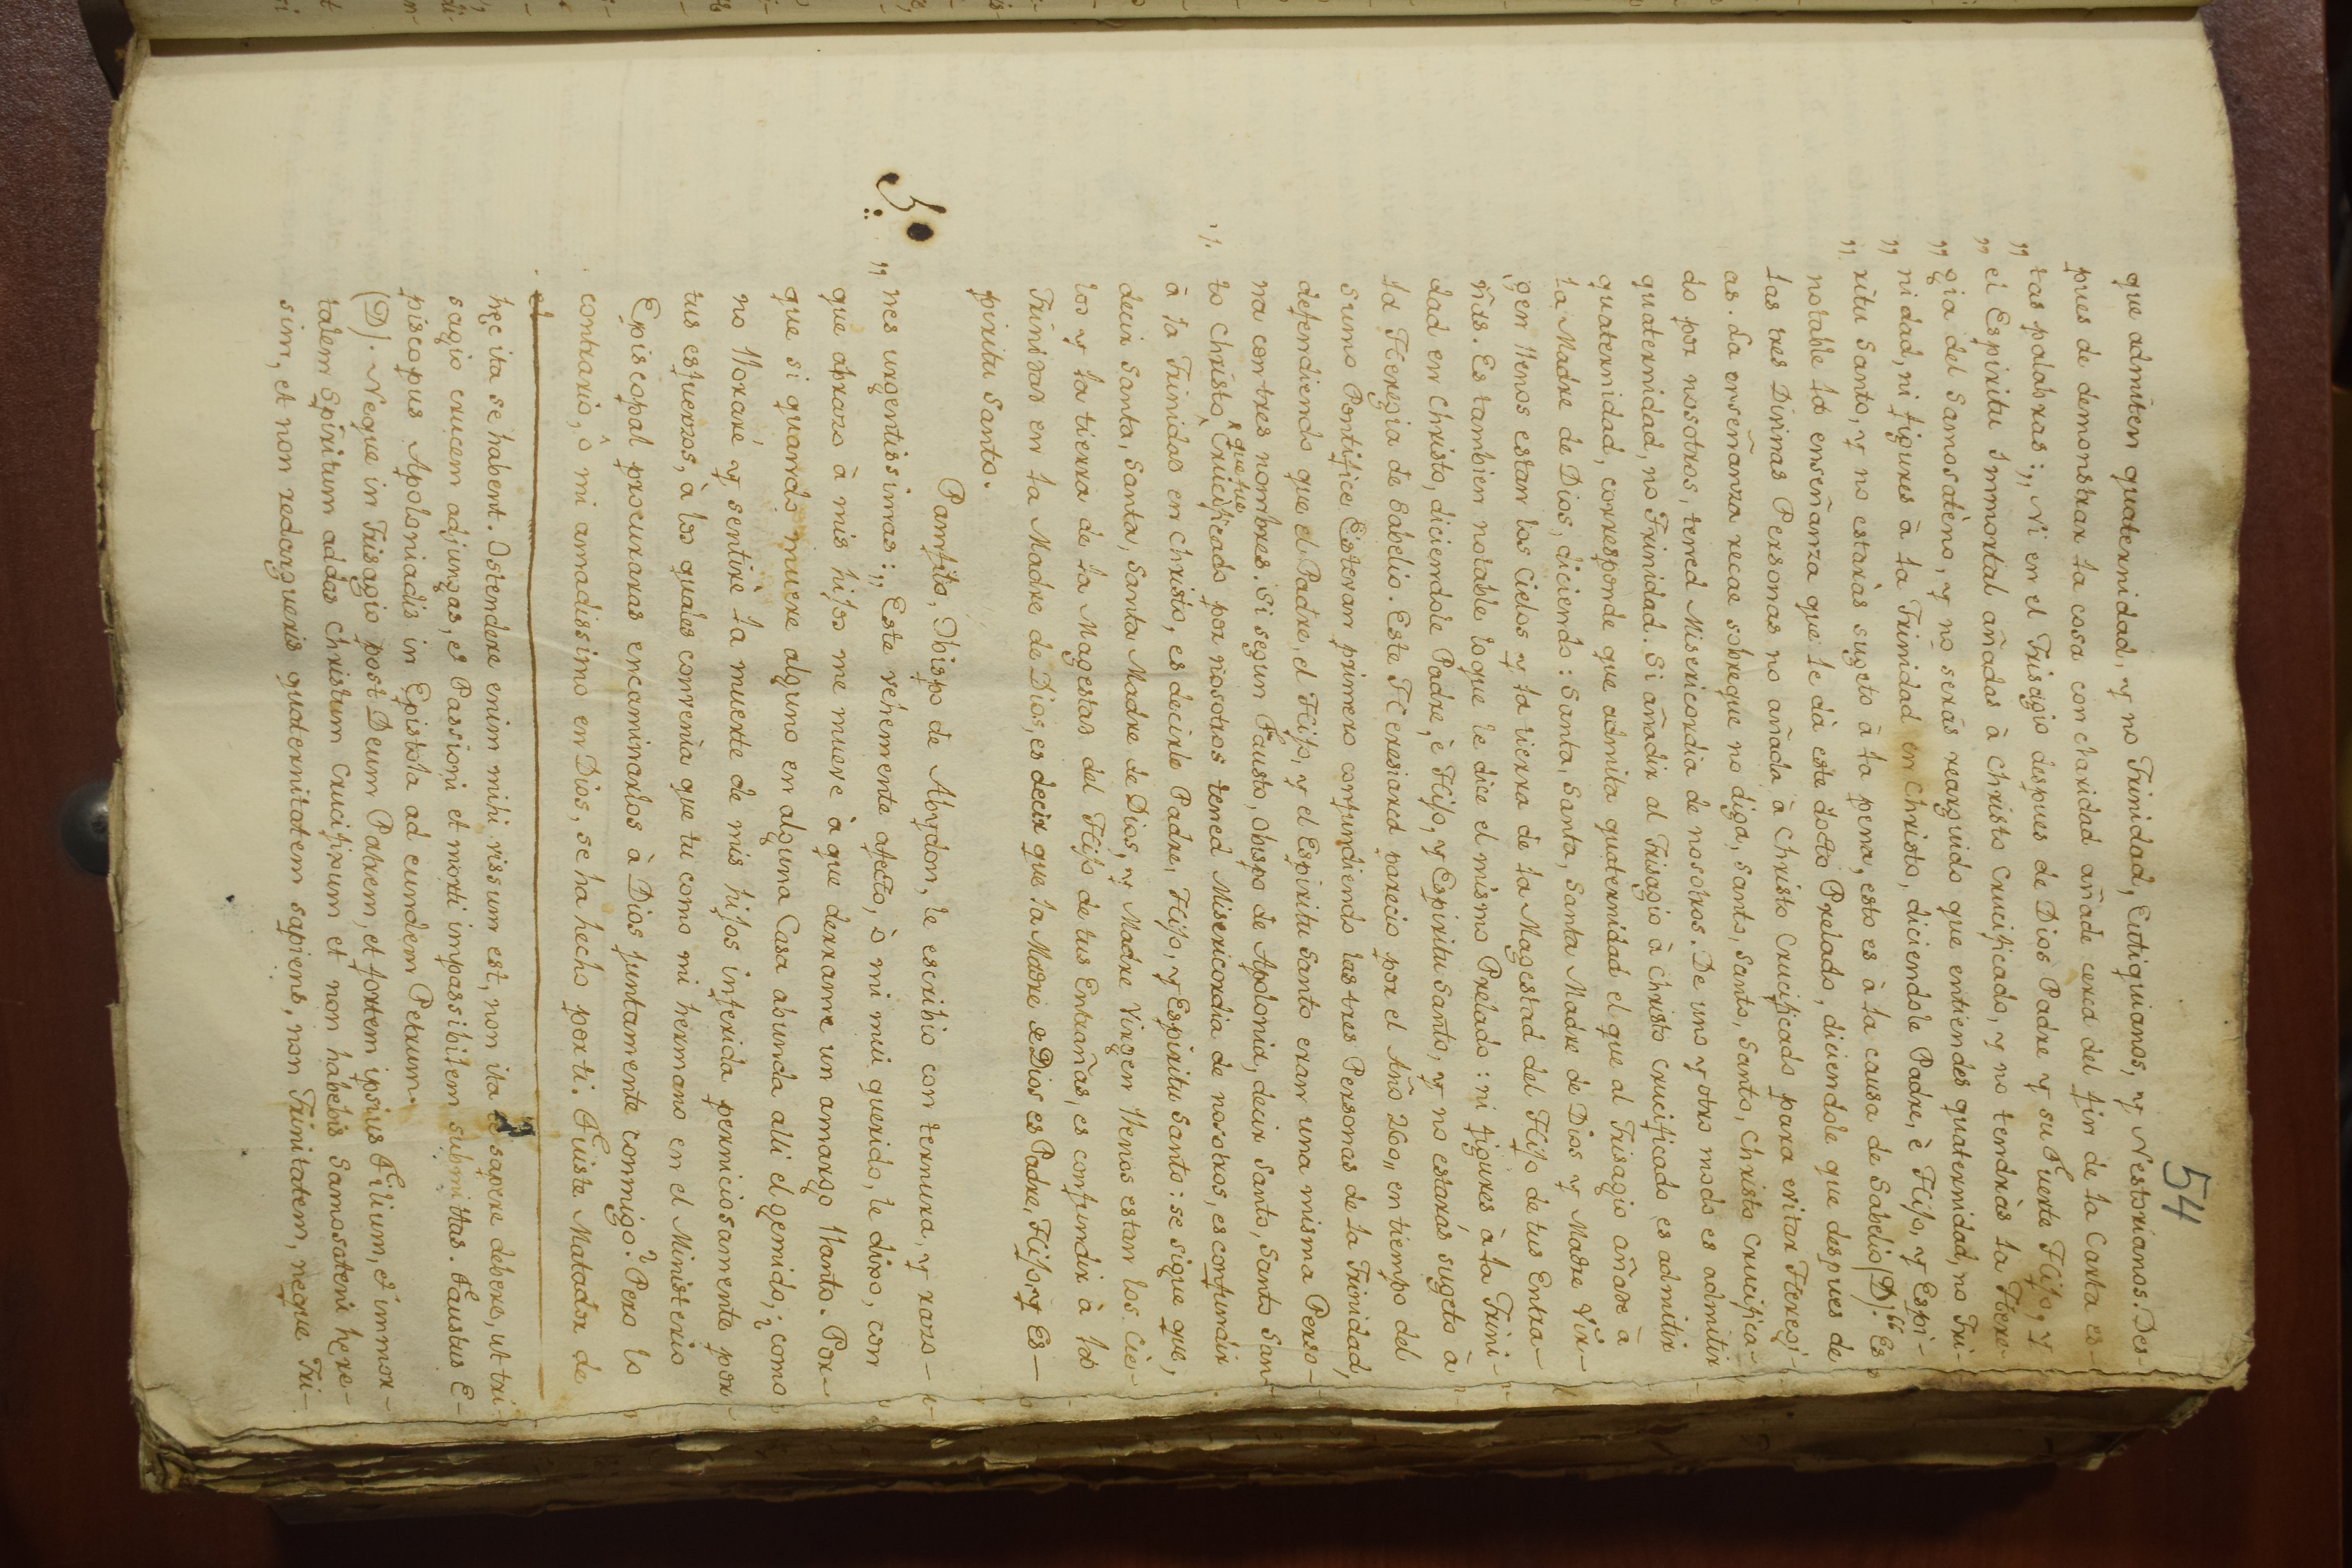 54
que admiten quaternidad, y no Trinidad, Eutiquianos, y Nestorianos. Des-
pues de demonstrar la cosa con claridad añade cerca del fin de la Carta es-
„ tas palabras:„ Ni en el Trisagio despues de Dios Padre y su Fuerte Hijo, y
„ el Espiritu Immortal añadas à Christo Crucificado, y no tendràs la Here-
„ gia del Samosatèno, y no seràs rearguido que entiendes quaternidad, no Tri-
„ nidad, ni figures à la Trinidad en Christo, diciendole Padre, è Hijo, y Espi-
„ ritu Santo, y no estaràs sugeto à la pena, esto es à la causa de Sabelio (D).“ Es
notable la enseñanza que le dà este docto Prelado, diciendole que despues de
las tres Divinas Personas no añada à Christo Crucificado para evitar Heregi-
as. La enseñanza recae sobreque no diga, Santo, Santo, Santo, Christo Crucifica-
do por nosotros, tened Misericordia de nosotros. De uno y otro modo es admitir
quaternidad, no Trinidad. Si añadir al Trisagio à Christo Crucificado es admitir
quaternidad, corresponde que admita quaternidad el que al Trisagio añade à
la Madre de Dios, diciendo: Santa, Santa, Santa, Santa Madre de Dios y Madre Vir-
gen llenos estan los Cielos y la tierra de la Magestad del Hijo de tus Entra-
ñas. Es tambien notable loque le dice el mismo Prelado: ni figures à la Trini-
dad en Christo, diciendole Padre, è Hijo, y Espiritu Santo, y no estaràs sugeto à
la Heregia de Sabelio. Este Heresiarca parecio por el Año 260„ en tiempo del
Sumo Pontifice Estevan primero confundiendo las tres Personas de la Trinidad,
defendiendo que el Padre, el Hijo, y el Espiritu Santo eran una misma Perso-
na con tres nombres. Si segun Fausto, Obispo de Apolonia, decir Santo, Santo San-
que fue
to Christo Crucificado por nosotros tened Misericordia de nosotros, es confundir
à la Trinidad en Christo, es decirle Padre, Hijo, y Espiritu Santo: se sigue que,
decir Santa, Santa, Santa Madre de Dios, y Madre Virgen llenos estan los Cie-
los y la tierra de la Magestad del Hijo de tus Entrañas, es confundir à la
Trinidad en la Madre de Dios, es decir que la Madre de Dios es Padre, Hijo, y Es-
piritu Santo.
Pamfilo, Obispo de Abydon, le escribio con ternura, y razo-
„ nes urgentissimas:„ Este vehemente afecto, ò mi mui querido, le dixo, con
que abrazo à mis hijos me mueve à que derrame un amargo llanto. Por-
que si quando muere alguno en alguna Casa abunda alli el gemido; como
no lloraré, y sentirè la muerte de mis hijos inferida perniciosamente por
tus esfuerzos, à los quales convenìa que tu como mi hermano en el Ministerio
Episcopal procuraras encaminarlos à Dios juntamente conmigo? Pero lo
contrario, ò mi amadissimo en Dios, se ha hecho por ti. Fuiste Matador de
el
hęc ita se habent. Ostendere enim mihi vissum est, non ita te sapere debere, ut tri-
sagio crucem adjungas, et Passioni et morti impassibilem submittas. Faustus E-
piscopus Apoloniadis in Epistola ad eundem Petrum.
(D). Neque in Trisagio post Deum Patrem, et fortem ipsius Filium, et immor-
talem Spiritum addas Christum Crucifixum et non habebis Samosateni here-
sim, et non redargueris quaternitatem sapiens, non Trinitatem, neque Tri-